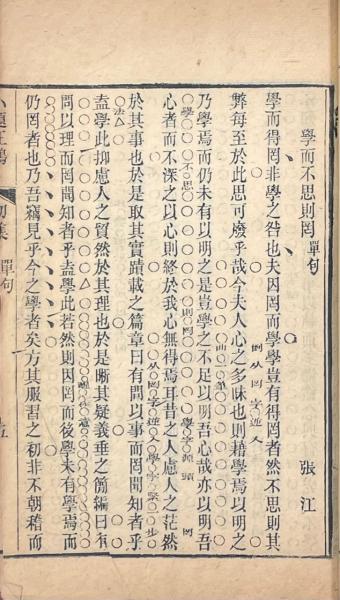 學而不思則罔 單句
張江
學而得罔非學之咎也夫因罔而學學豈有得罔者然不思則其
弊每至於此思可廢乎哉今夫人心之多昧也則藉學焉以明之
乃學焉而仍未有以明之是豈學之不足以明吾心哉亦以明吾
心者而不深之以心則終於我心無得焉耳昔之人慮人之茫然
於其事也於是取其實蹟載之篇章曰有問以事而罔聞知者乎
盍學此抑慮人之貿然於其理也於是晰其疑義垂之簡編曰有
問以理而罔聞知者乎盍學此若然則因罔而後學未有學焉而
仍罔者也乃吾竊見乎今之學者矣方其服習之初非不朝稽而
初集
單句